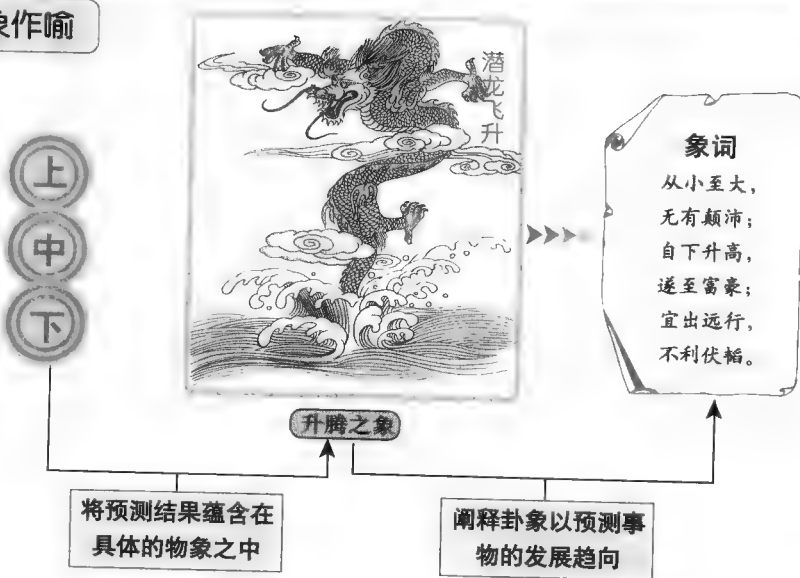 象作喻
上
中
下
潜龙飞升
象词
从小至大，
无有颠沛；
自下升高，
遂至富豪；
宜出远行，
不利伏韬。
升腾之象
将预测结果蕴含在
具体的物象之中
阐释卦象以预测事
物的发展趋向